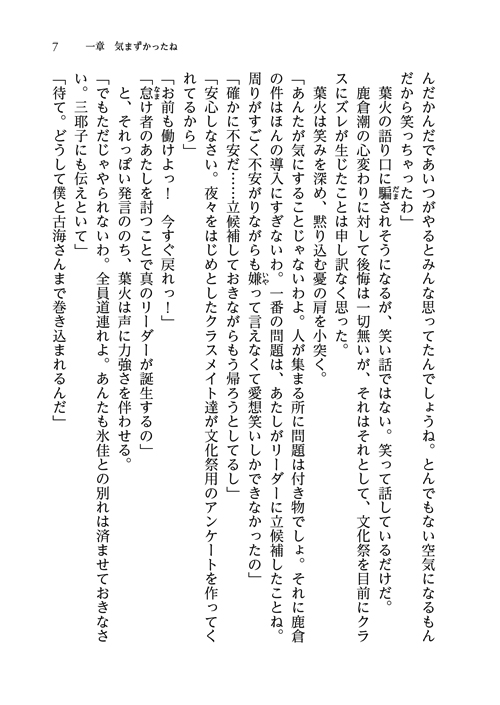 7　一章　気まずかったね
んだかんだであいつがやるとみんな思ってたんでしょうね。とんでもない空気になるもん
だから笑っちゃったわ」
　葉火の語り口に騙されそうになるが、笑い話ではない。笑って話しているだけだ。
　鹿倉潮の心変わりに対して後悔は一切無いが、それはそれとして、文化祭を目前にクラ
スにズレが生じたことは申し訳なく思った。
　葉火は笑みを深め、黙り込む憂の肩を小突く。
「あんたが気にすることじゃないわよ。人が集まる所に問題は付き物でしょ。それに鹿倉
の件はほんの導入にすぎないわ。一番の問題は、あたしがリーダーに立候補したことね。
周りがすごく不安がりながらも嫌って言えなくて愛想笑いしかできなかったの」
「確かに不安だ……立候補しておきながらもう帰ろうとしてるし」
「安心しなさい。夜々をはじめとしたクラスメイト達が文化祭用のアンケートを作ってく
れてるから」
「お前も働けよっ！　今すぐ戻れっ！」
「怠け者のあたしを討つことで真のリーダーが誕生するの」
　と、それっぽい発言ののち、葉火は声に力強さを伴わせる。
「でもただじゃやられないわ。全員道連れよ。あんたも氷佳との別れは済ませておきなさ
い。三耶子にも伝えといて」
「待て。どうして僕と古海さんまで巻き込まれるんだ」